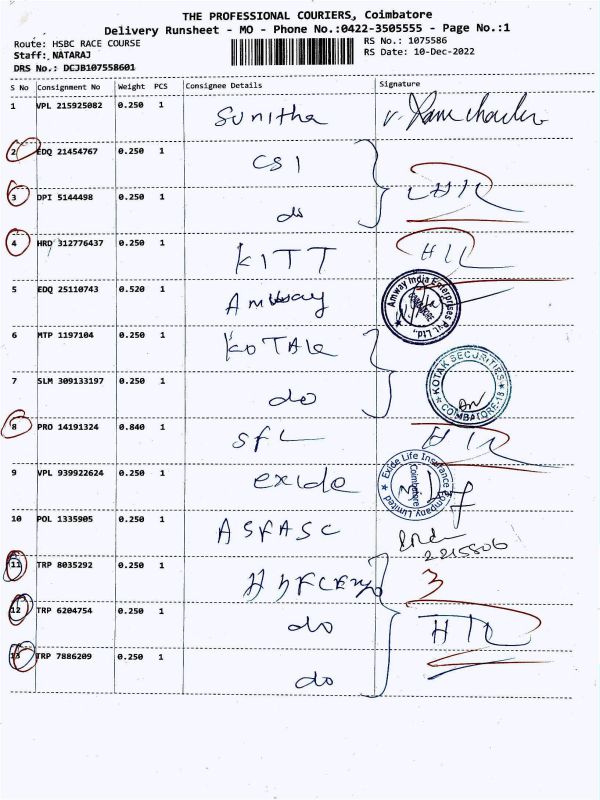 THE PROFESSIONAL COURIERS, Coimbatore
Delivery Runsheet - MO - Phone No.:0422-3505555 - Page No.:1
Route: HSBC RACE COURSE
RS No.: 1075586
Staff: NATARAJ
RS Date: 10-Dec-2022
DRS No.: DCJB107558601
S No Consignment No Weight PCS Consignee Details Signature
1 VPL 215925082 0.250 1 Sunitha
2 EDQ 21454767 0.250 1 CSI
3 DPI 5144498 0.250 1 do
4 HRD 312776437 0.250 1 KITT
5 EDQ 25110743 0.520 1 Amway
Amway India Enterprises Pvt. Ltd.,
6 MTP 1197104 0.250 1 KOTAK
7 SLM 309133197 0.250 1 do
KOTAK SECURITIES
COIMBATORE-18
8 PRO 14191324 0.840 1 SFL
9 VPL 939922624 0.250 1 exide
Exide Life Insurance Company Limited
Coimbatore
10 POL 1335905 0.250 1 ASFASC
11 TRP 8035292 0.250 1 3
12 TRP 6204754 0.250 1 do
13 TRP 7886209 0.250 1 do